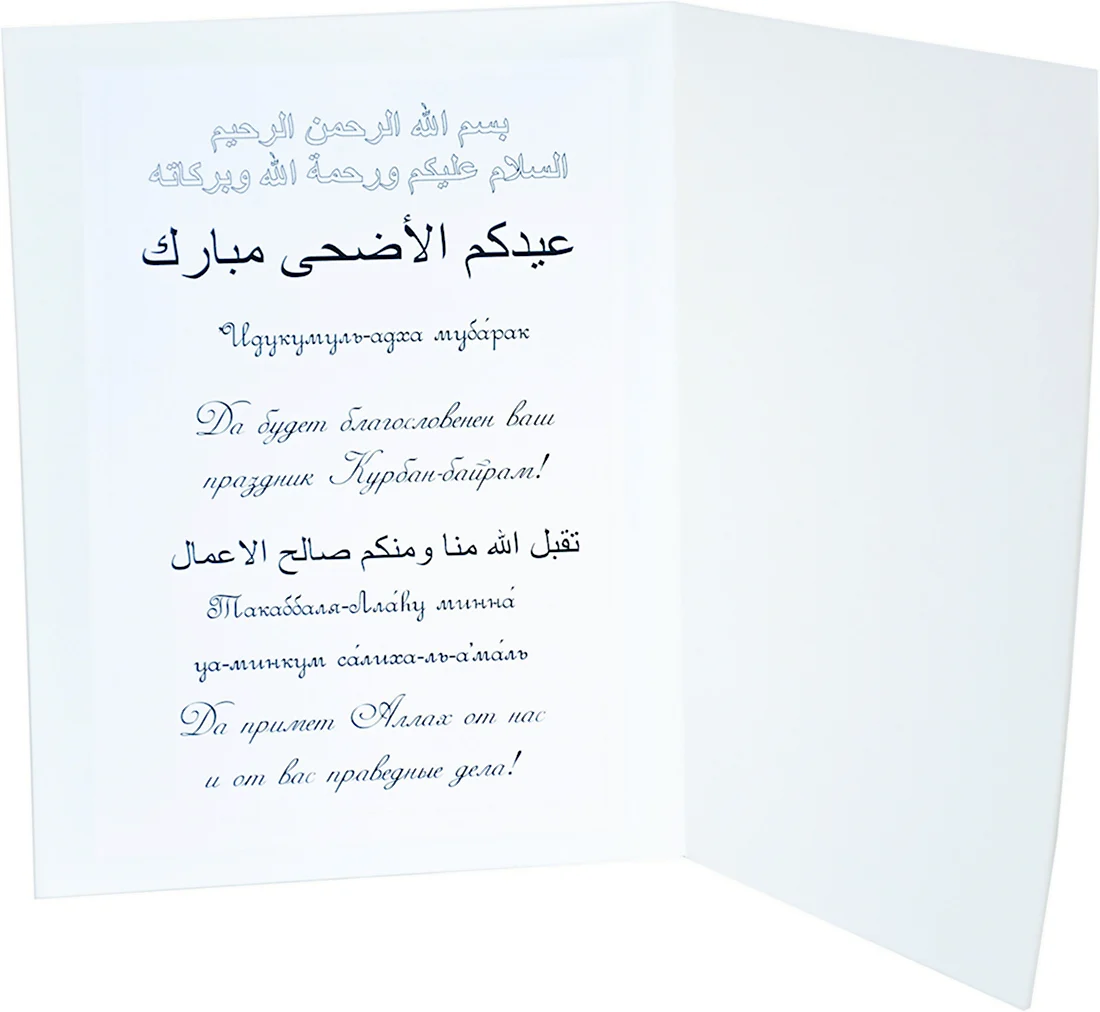 بسم الله الرحمن الرحيم
السلام عليكم ورحمة الله وبركاته
عيدكم الأضحى مبارك
‘Идукумуль-адха муба́рак
Да будет благословенен ваш
праздник Курбан-байрам!
تقبل الله منا ومنكم صالح الاعمال
Такаббаля-Лла́һу минна́
уа-минкум са́лиха-ль-а’ма́ль
Да примет Аллах от нас
и от вас праведные дела!